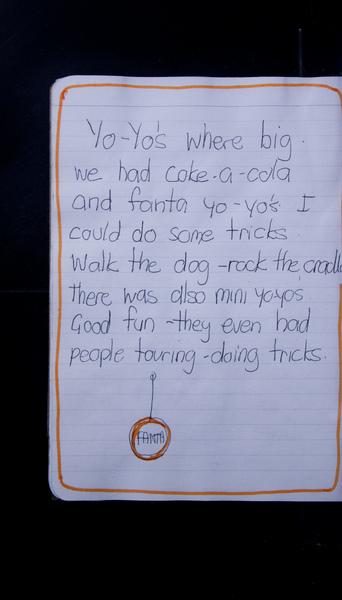 Yo-Yo's where big.
we had coke-a-cola
and fanta yo-yo's I
could do some tricks.
Walk the dog -rock the cradle
there was also mini yoyo's.
Good fun -they even had
people touring -doing tricks.
FANTA